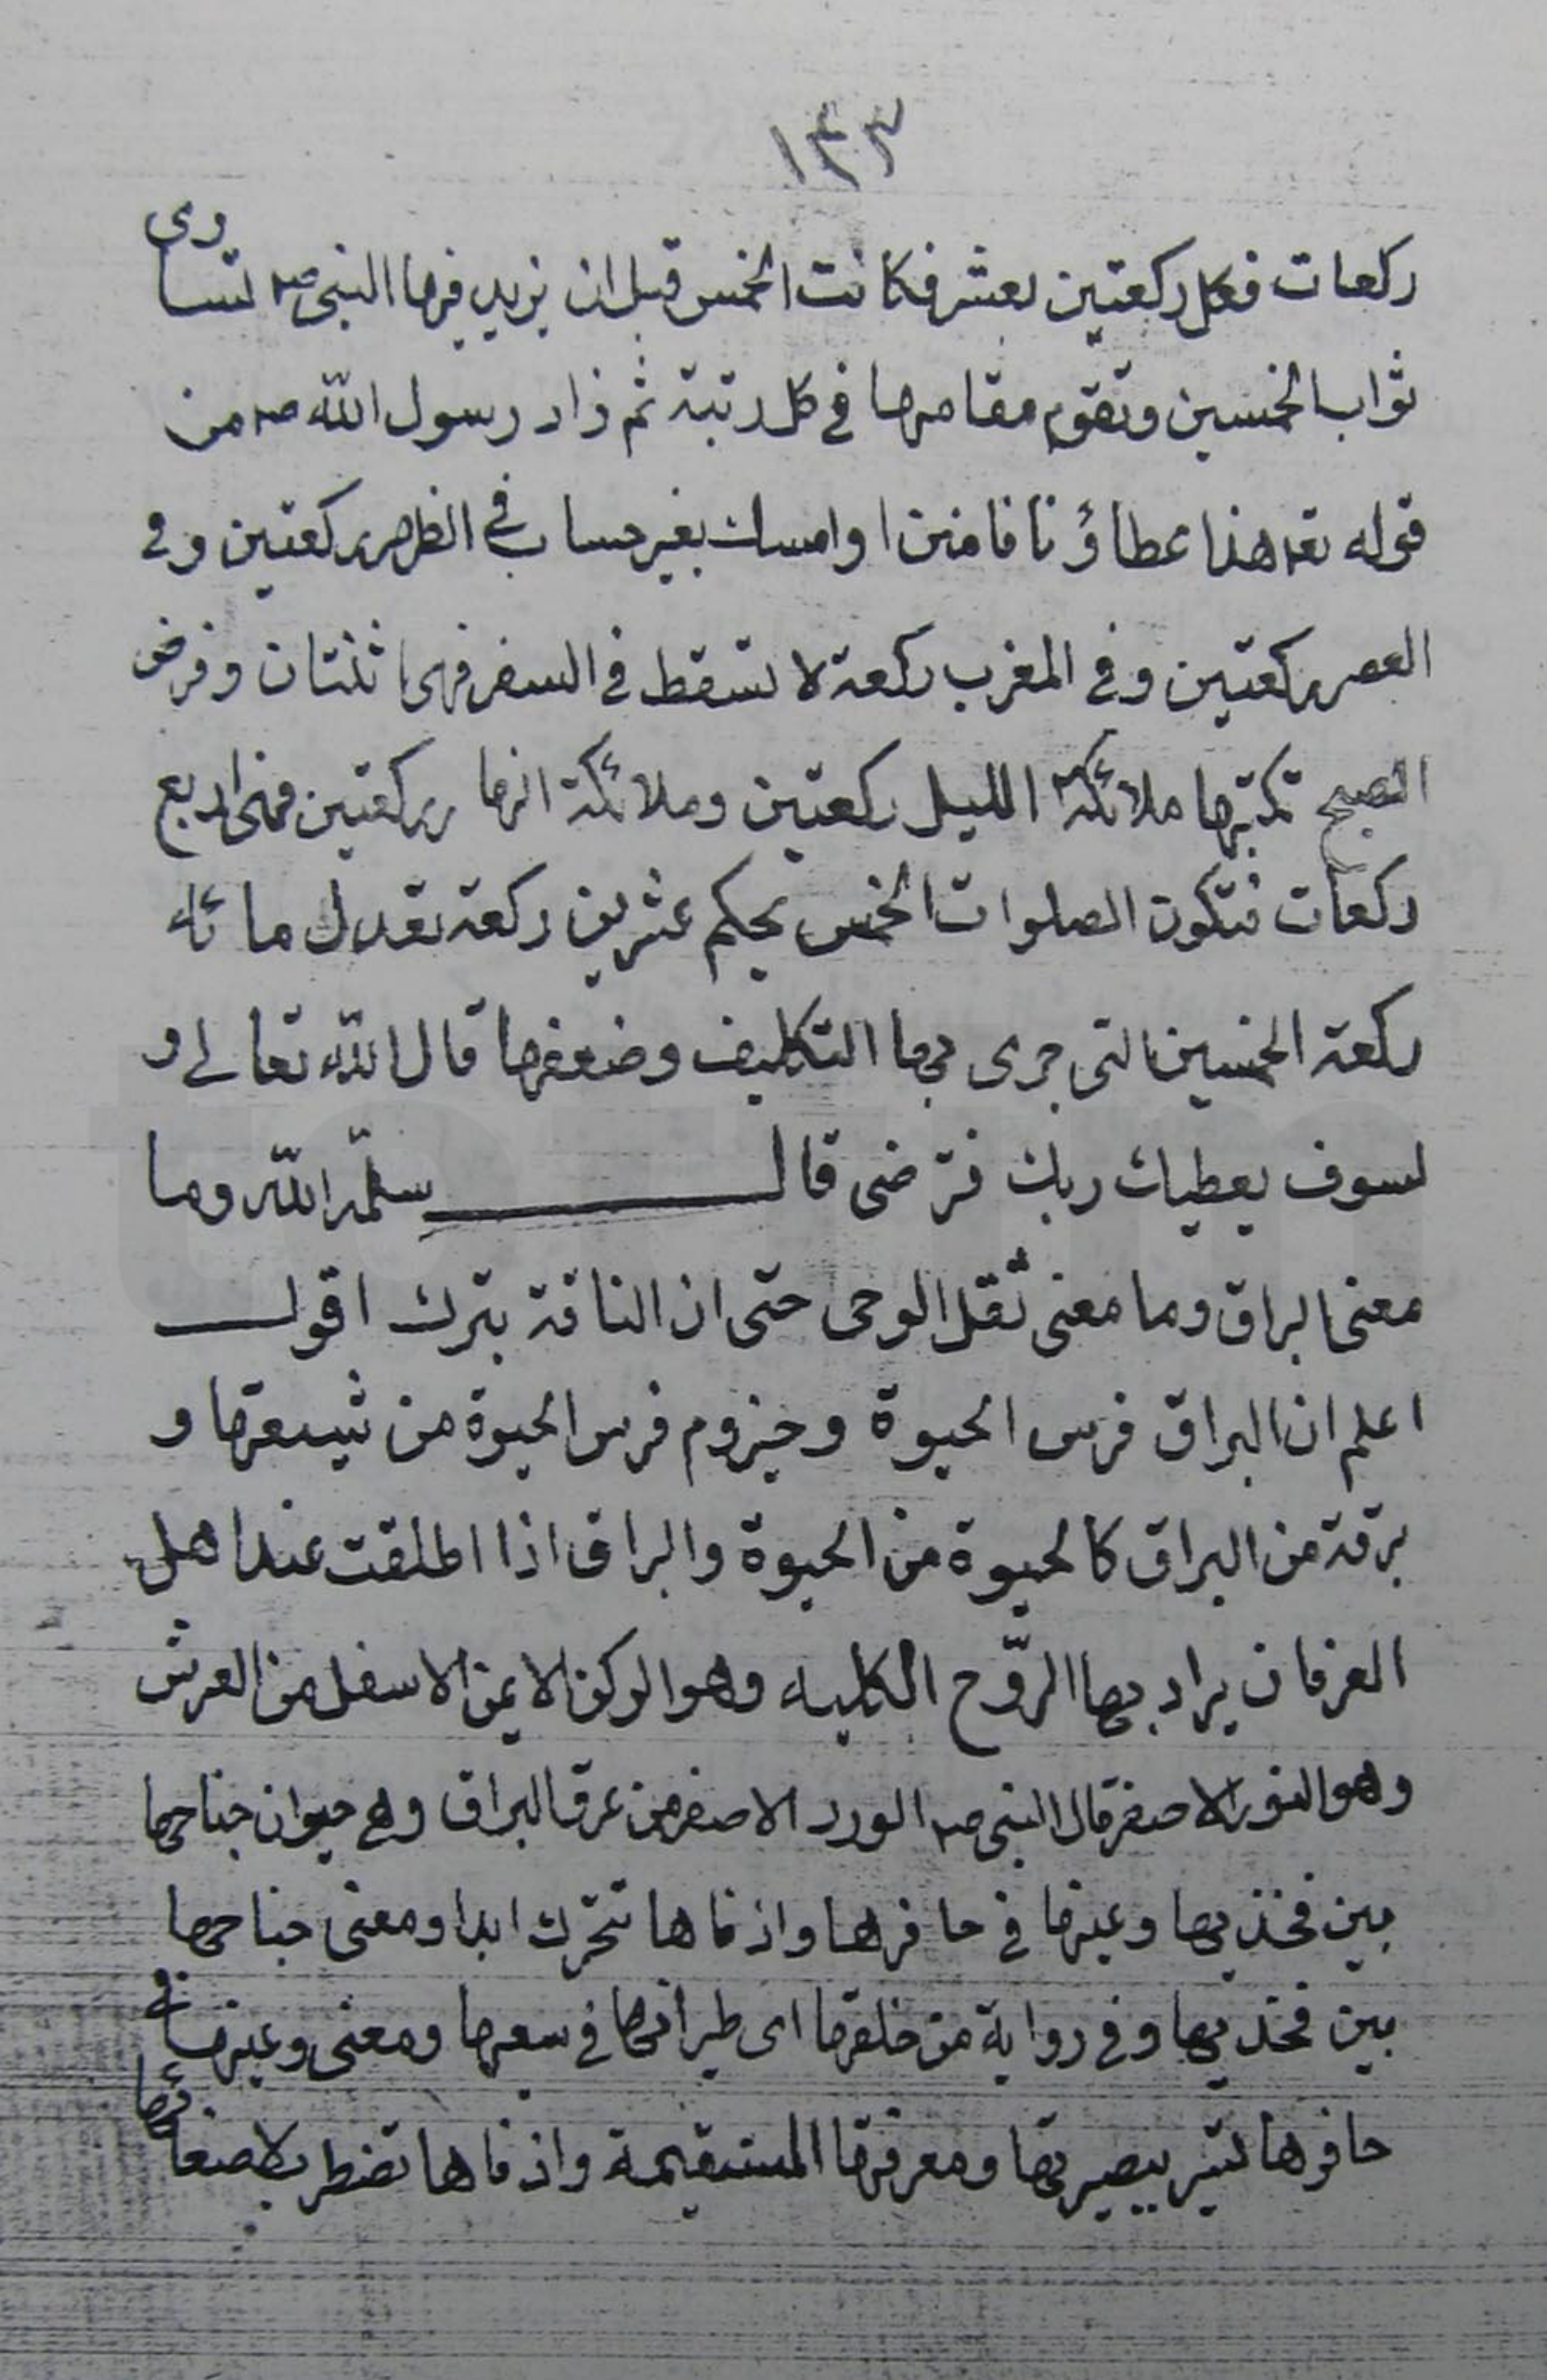 ١٣٣
ركعات فكل ركعتين بعشر فكانت الخمس قبل ان يزيد فيها النبي صه تساوى
ثواب الخمسين وتقوم مقامها فى كل رتبة ثم زاد رسول الله صه من
قوله تعه هذا عطاؤنا فامنن او امسك بغير حساب فى الظهر ركعتين وفى
العصر ركعتين وفى المغرب ركعة لا تسقط فى السفر فهى ثنتان وفرض
الصبح تكتبها ملائكة الليل ركعتين وملائكة النهار ركعتين فهى اربع
ركعات فتكون الصلوات الخمس بحكم عشرين ركعة تعدل مائة
ركعة الخمسين التى جرى بها التكليف وضعفها قال الله تعالى و
لسوف يعطيك ربك فترضى قال سلمه الله وما
معنى البراق وما معنى ثقل الوحى حتى ان الناقة بترك اقول
اعلم ان البراق فرس الحيوة وحيزوم فرس الحيوة من شيعتها و
برقة من البراق كالحيوة من الحيوة والبراق اذا اطلقت عند اهل
العرفان يراد بها الروّح الكليه وهو الركن الايمن الاسفل من العرش
وهو النور الاصفر قال النبى صه الورد الاصفر من عرق البراق وهى حيوان جناحها
بين فخذيها وعينها فى حافرها واذناها تتحرك ابدا ومعنى جناحها
بين فخذيها وفى رواية من خلفها اى طيرانها فى سعيها ومعنى وعينها فى
حافرها تسير ببصيرتها ومعرفتها المستقيمة واذناها تضطر بلاصغائها